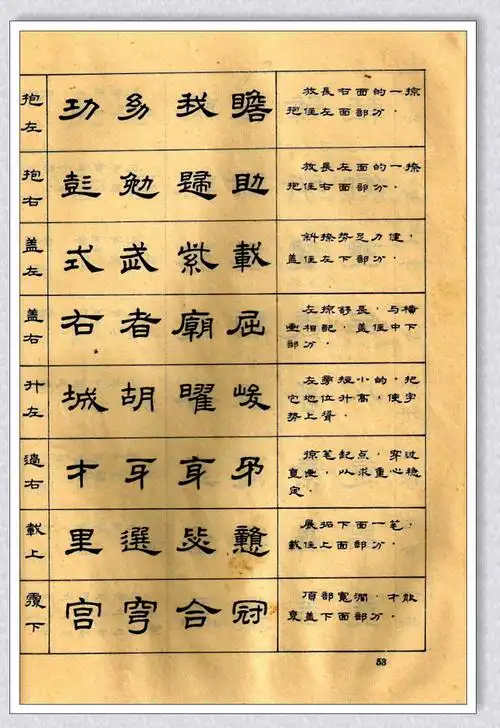 抱左 功 幼 我 瞻
放長右面的一掠
抱住左面部分.
抱右 彭 勉 歸 助
放長左面的一捺
抱住右面部分.
盖左 式 武 紫 載
斜捺势足力健,
盖住左下部分.
盖右 右 者 廟 屈
左掠舒長,与橫
畫相配,盖住中下
部分.
升左 城 胡 曜 峻
左旁短小的,把
它地位升高,使字
势上聳.
過右 才 牙 身
掠笔起点,穿过
直畫,以求重心稳
定.
載上 里 選
展拓下面一笔,
載住上面部分.
覆下 宫 穹 合 冠
頂部寬濶,才能
盖下面部分.
53